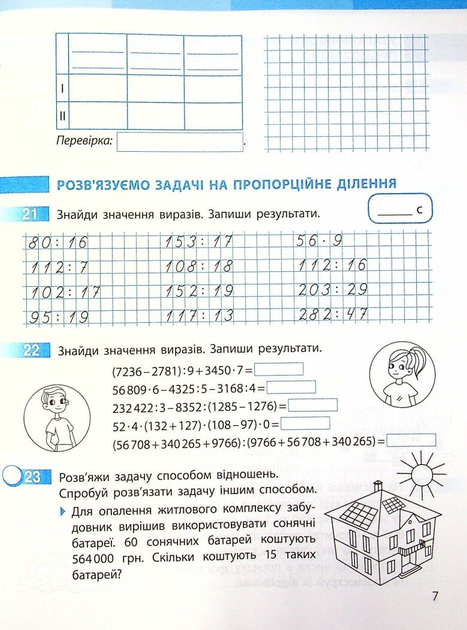 I
II
Перевірка:
РОЗВ'ЯЗУЄМО ЗАДАЧІ НА ПРОПОРЦІЙНЕ ДІЛЕННЯ
21 Знайди значення виразів. Запиши результати. ____ с
80 : 16 153 : 17 56 · 9
112 : 7 108 : 18 112 : 16
102 : 17 152 : 19 203 : 29
95 : 19 117 : 13 282 : 47
22 Знайди значення виразів. Запиши результати.
(7236 – 2781) : 9 + 3450 · 7 =
56 809 · 6 – 4325 : 5 – 3168 : 4 =
232 422 : 3 – 8352 : (1285 – 1276) =
52 · 4 · (132 + 127) · (108 – 97) · 0 =
(56 708 + 340 265 + 9766) : (9766 + 56 708 + 340 265) =
23 Розв'яжи задачу способом відношень.
Спробуй розв'язати задачу іншим способом.
Для опалення житлового комплексу забу-
довник вирішив використовувати сонячні
батареї. 60 сонячних батарей коштують
564 000 грн. Скільки коштують 15 таких
батарей?
7